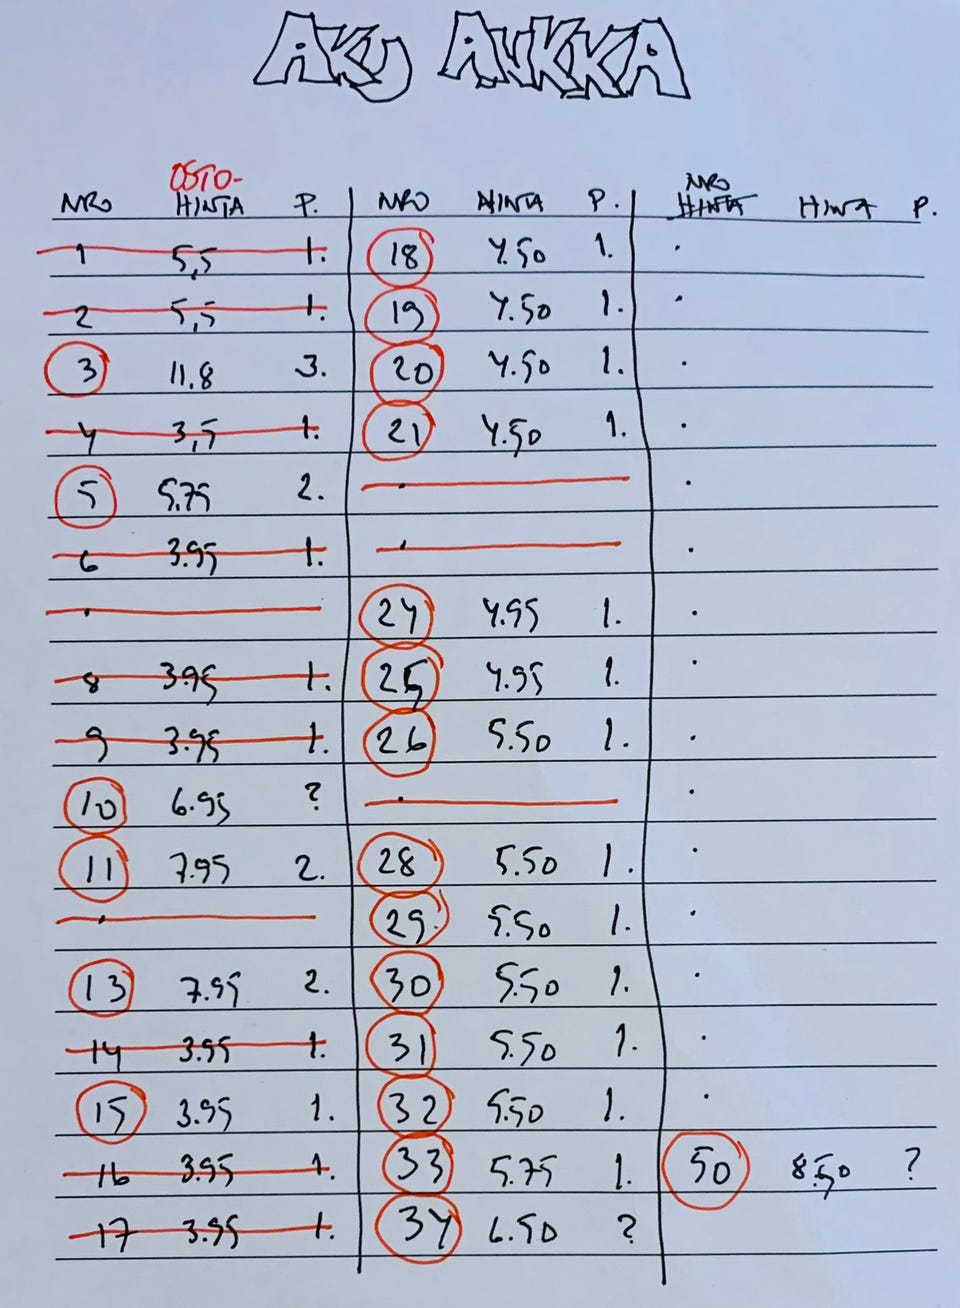 AKU ANKKA
NRO OSTO-HINTA P. NRO HINTA P. NRO HINTA HINTA P.
1 5,5 1. 18 4.50 1.
2 5,5 1. 19 4.50 1.
3 11,8 3. 20 4.50 1.
4 3,5 1. 21 4.50 1.
5 5.75 2.
6 3.95 1.
24 4.95 1.
8 3.95 1. 25 4.95 1.
9 3.95 1. 26 5.50 1.
10 6.95 ?
11 7.95 2. 28 5.50 1.
29 5.50 1.
13 7.95 2. 30 5.50 1.
14 3.95 1. 31 5.50 1.
15 3.95 1. 32 5.50 1.
16 3.95 1. 33 5.75 1. 50 8.50 ?
17 3.95 1. 34 6.50 ?